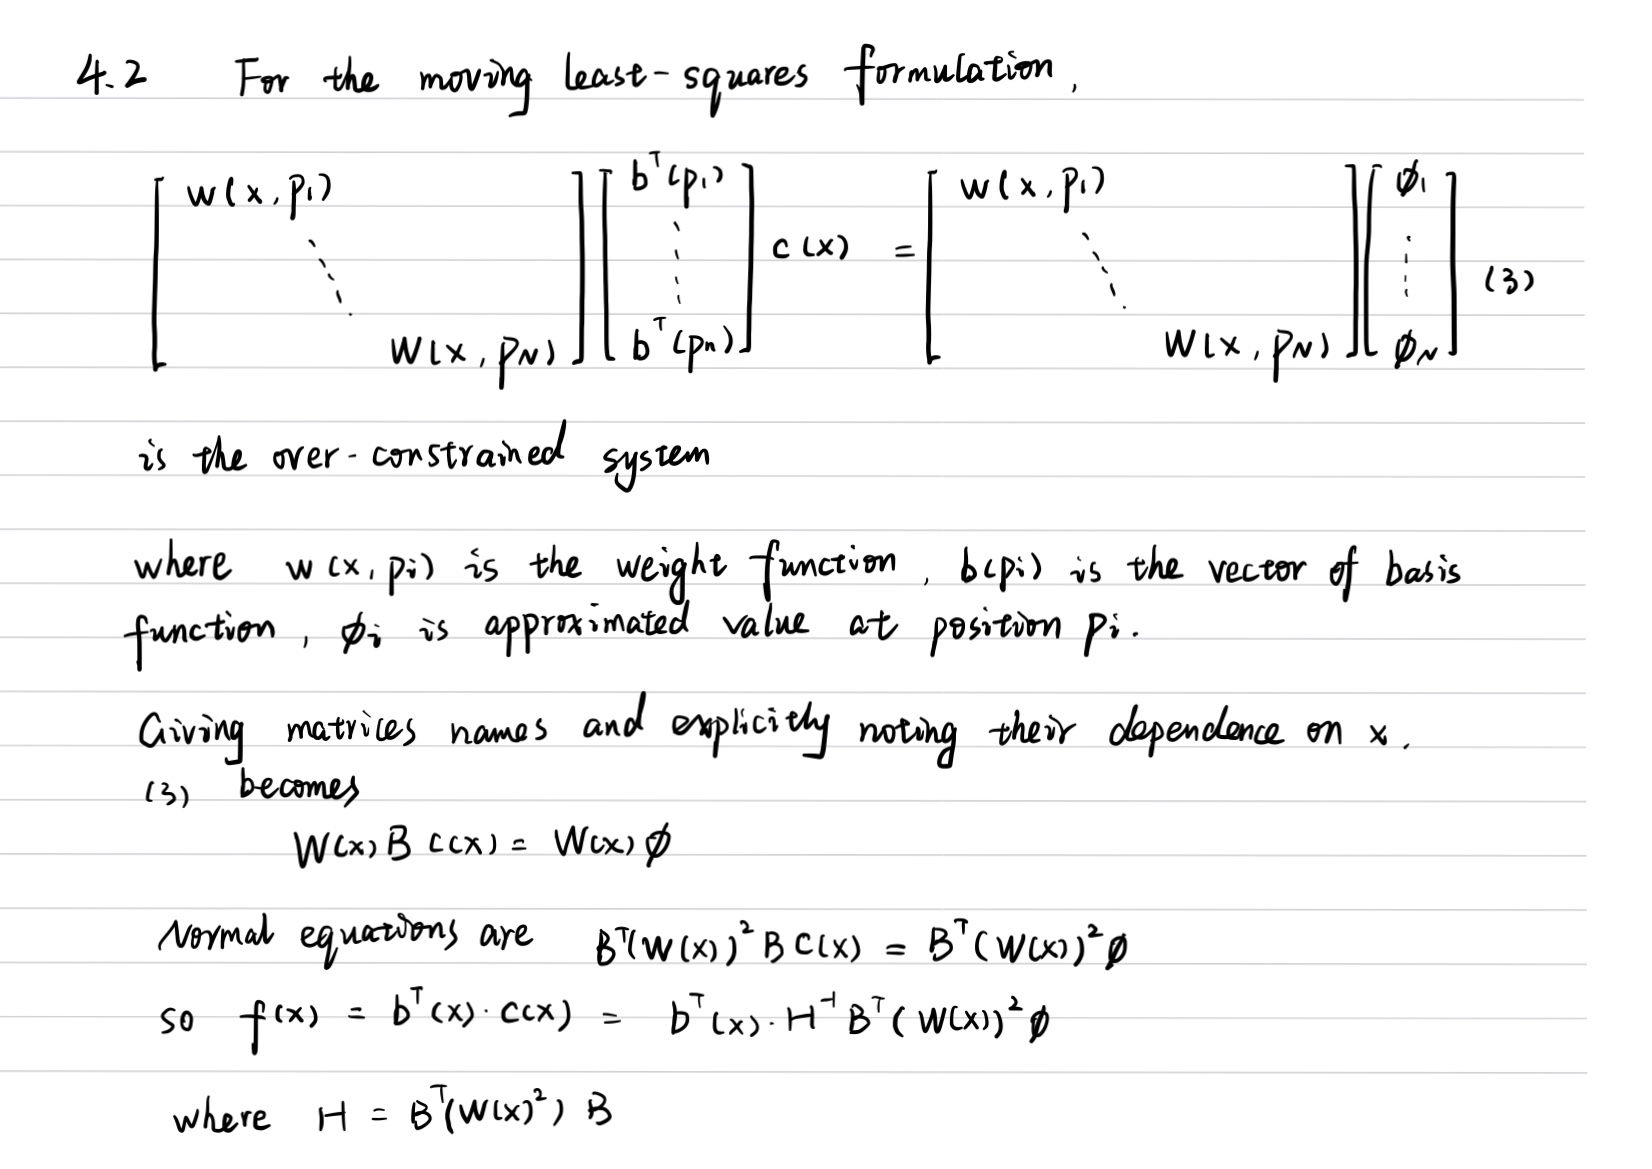 4.2 For the moving least-squares formulation,
[ w(x, p₁) ⋱ w(x, p_N) ] [ bᵀ(p₁) ⋮ bᵀ(pₙ) ] c(x) = [ w(x, p₁) ⋱ w(x, p_N) ] [ ϕ₁ ⋮ ϕ_N ] (3)
is the over-constrained system
where w(x, pi) is the weight function, b(pi) is the vector of basis
function, ϕi is approximated value at position pi.
Giving matrices names and explicitly noting their dependence on x.
(3) becomes
W(x) B c(x) = W(x) ϕ
Normal equations are Bᵀ(W(x))² B C(x) = Bᵀ(W(x))² ϕ
so f(x) = bᵀ(x) · c(x) = bᵀ(x) · H⁻¹ Bᵀ(W(x))² ϕ
where H = Bᵀ(W(x)²) B